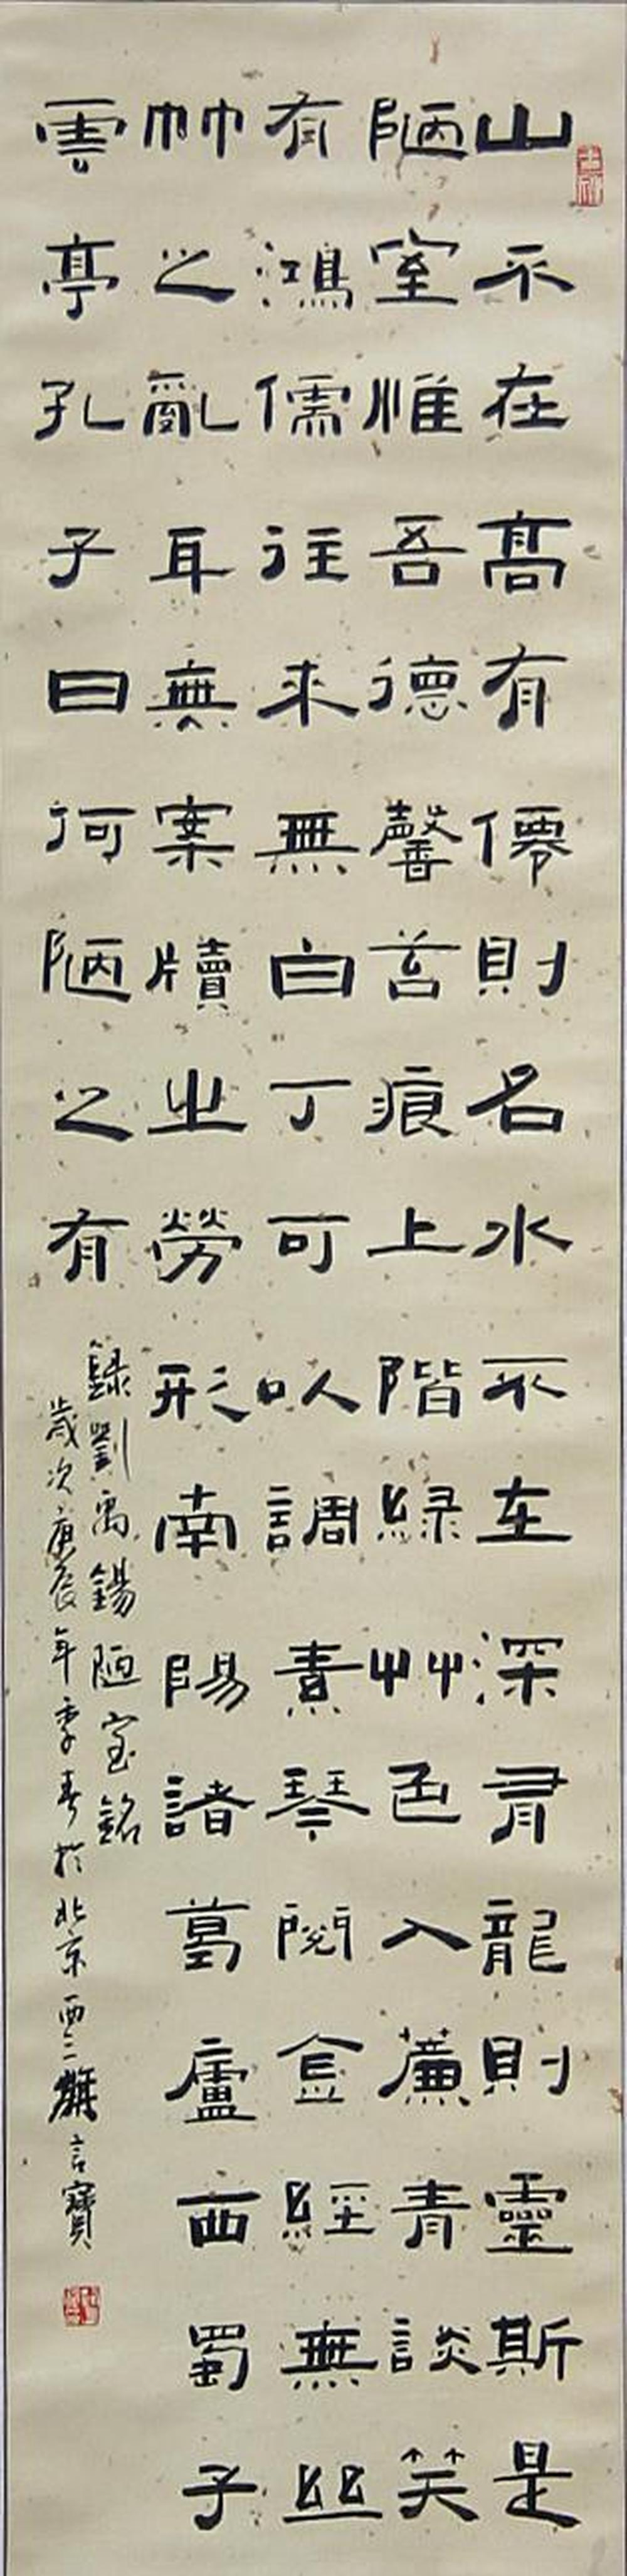 山不在高有僊則名水不在深有龍則靈斯是
陋室惟吾德馨苔痕上階綠艸色入簾青談笑
有鴻儒往來無白丁可以調素琴閱金經無絲
竹之亂耳無案牘之勞形南陽諸葛廬西蜀子
雲亭孔子曰何陋之有
録劉禹錫陋室銘
歲次庚辰年季春於北京西二旗言寶